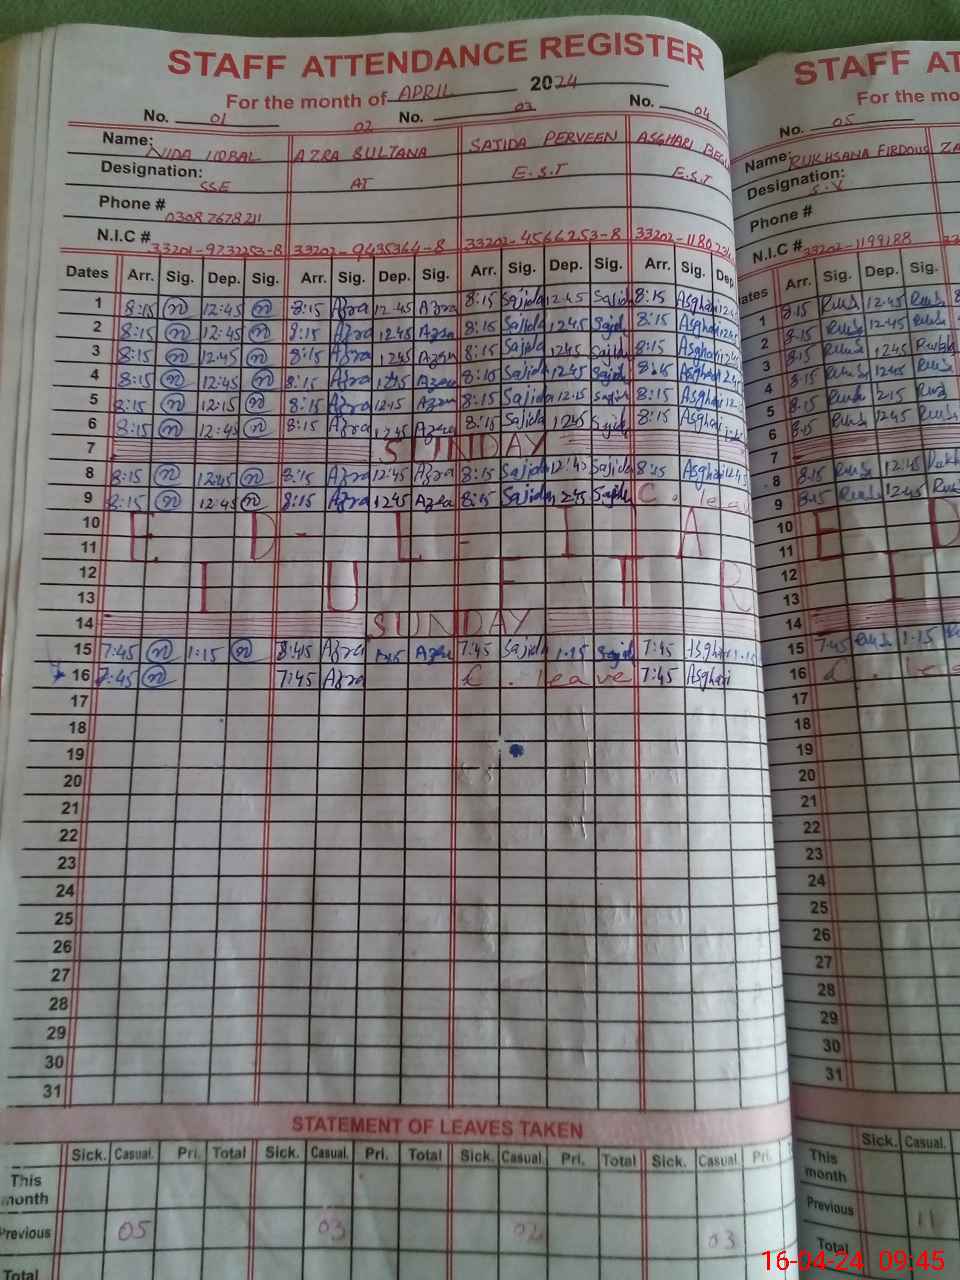 STAFF ATTENDANCE REGISTER
For the month of APRIL 2024
No. 01 02 No. 03 No. 04
Name: NIDA IQBAL AZRA SULTANA SAJIDA PERVEEN ASGHARI
Designation: SSE AT E.S.T E.S.T
Phone # 03087678211
N.I.C # 33201-9732253-8 33202-9435364-8 33202-4566253-8
Dates Arr. Sig. Dep. Sig. Arr. Sig. Dep. Sig. Arr. Sig. Dep. Sig. Arr. Sig. Dep
1 8:15 n 12:45 n 8:15 Azra 12.45 Azra 8:15 Sajida 12:45 Sajida 8:15 Asghari
2 8:15 n 12:45 n 8:15 Azra 12:45 Azra 8:15 Sajida 12:45 Sajida 8:15 Asghari
3 8:15 n 12:45 n 8:15 Azra 12:45 Azra 8:15 Sajida 12:45 Sajida 8:15 Asghari
4 8:15 n 12:45 n 8:15 Azra 12:45 Azra 8:15 Sajida 12:45 Sajida 8:15 Asghari
5 8:15 n 12:15 n 8:15 Azra 12:15 Azra 8:15 Sajida 12:15 Sajida 8:15 Asghari
6 8:15 n 12:45 n 8:15 Azra 12:45 Azra 8:15 Sajida 12:45 Sajida 8:15 Asghari
7 SUNDAY
8 8:15 n 12:45 n 8:15 Azra 12:45 Azra 8:15 Sajida 12:45 Sajida 8:15 Asghari 12:45
9 8:15 n 12:45 n 8:15 Azra 12:45 Azra 8:15 Sajida 12:45 Sajida C. leave
10
E D - L - I A
11
12
I U F T R
13
14 SUNDAY
15 7:45 n 1:15 n 8:45 Azra 1:15 Azra 7:45 Sajida 1:15 Sajida 7:45 Asghari
16 7:45 n 7:45 Azra C. leave 7:45 Asghari
17
18
19
20
21
22
23
24
25
26
27
28
29
30
31
STATEMENT OF LEAVES TAKEN
Sick. Casual. Pri. Total Sick. Casual. Pri. Total Sick. Casual. Pri. Total Sick. Casual. Pri.
This month
Previous 05 03 02 03
Total
STAFF AT
For the mo
No. 05
Name: RUKHSANA FIRDOUS
Designation: S.V
Phone #
N.I.C # 33202-1199188
ates Arr. Sig. Dep. Sig.
1 8:15 Rukh 12:45 Rukh
2 8:15 Rukh 12:45 Rukh
3 8:15 Rukh 12:45 Rukh
4 8:15 Rukh 12:45 Rukh
5 8:15 Rukh 12:15 Rukh
6 8:15 Rukh 12:45 Rukh
7
8 8:15 Rukh 12:45 Rukh
9 8:15 Rukh 12:45 Rukh
10
E D
11
12
I
13
14
15 7:45 Rukh 1:15
16 C. lea
17
18
19
20
21
22
23
24
25
26
27
28
29
30
31
Sick. Casual.
This month
Previous 11
Total
16-04-24 09:45